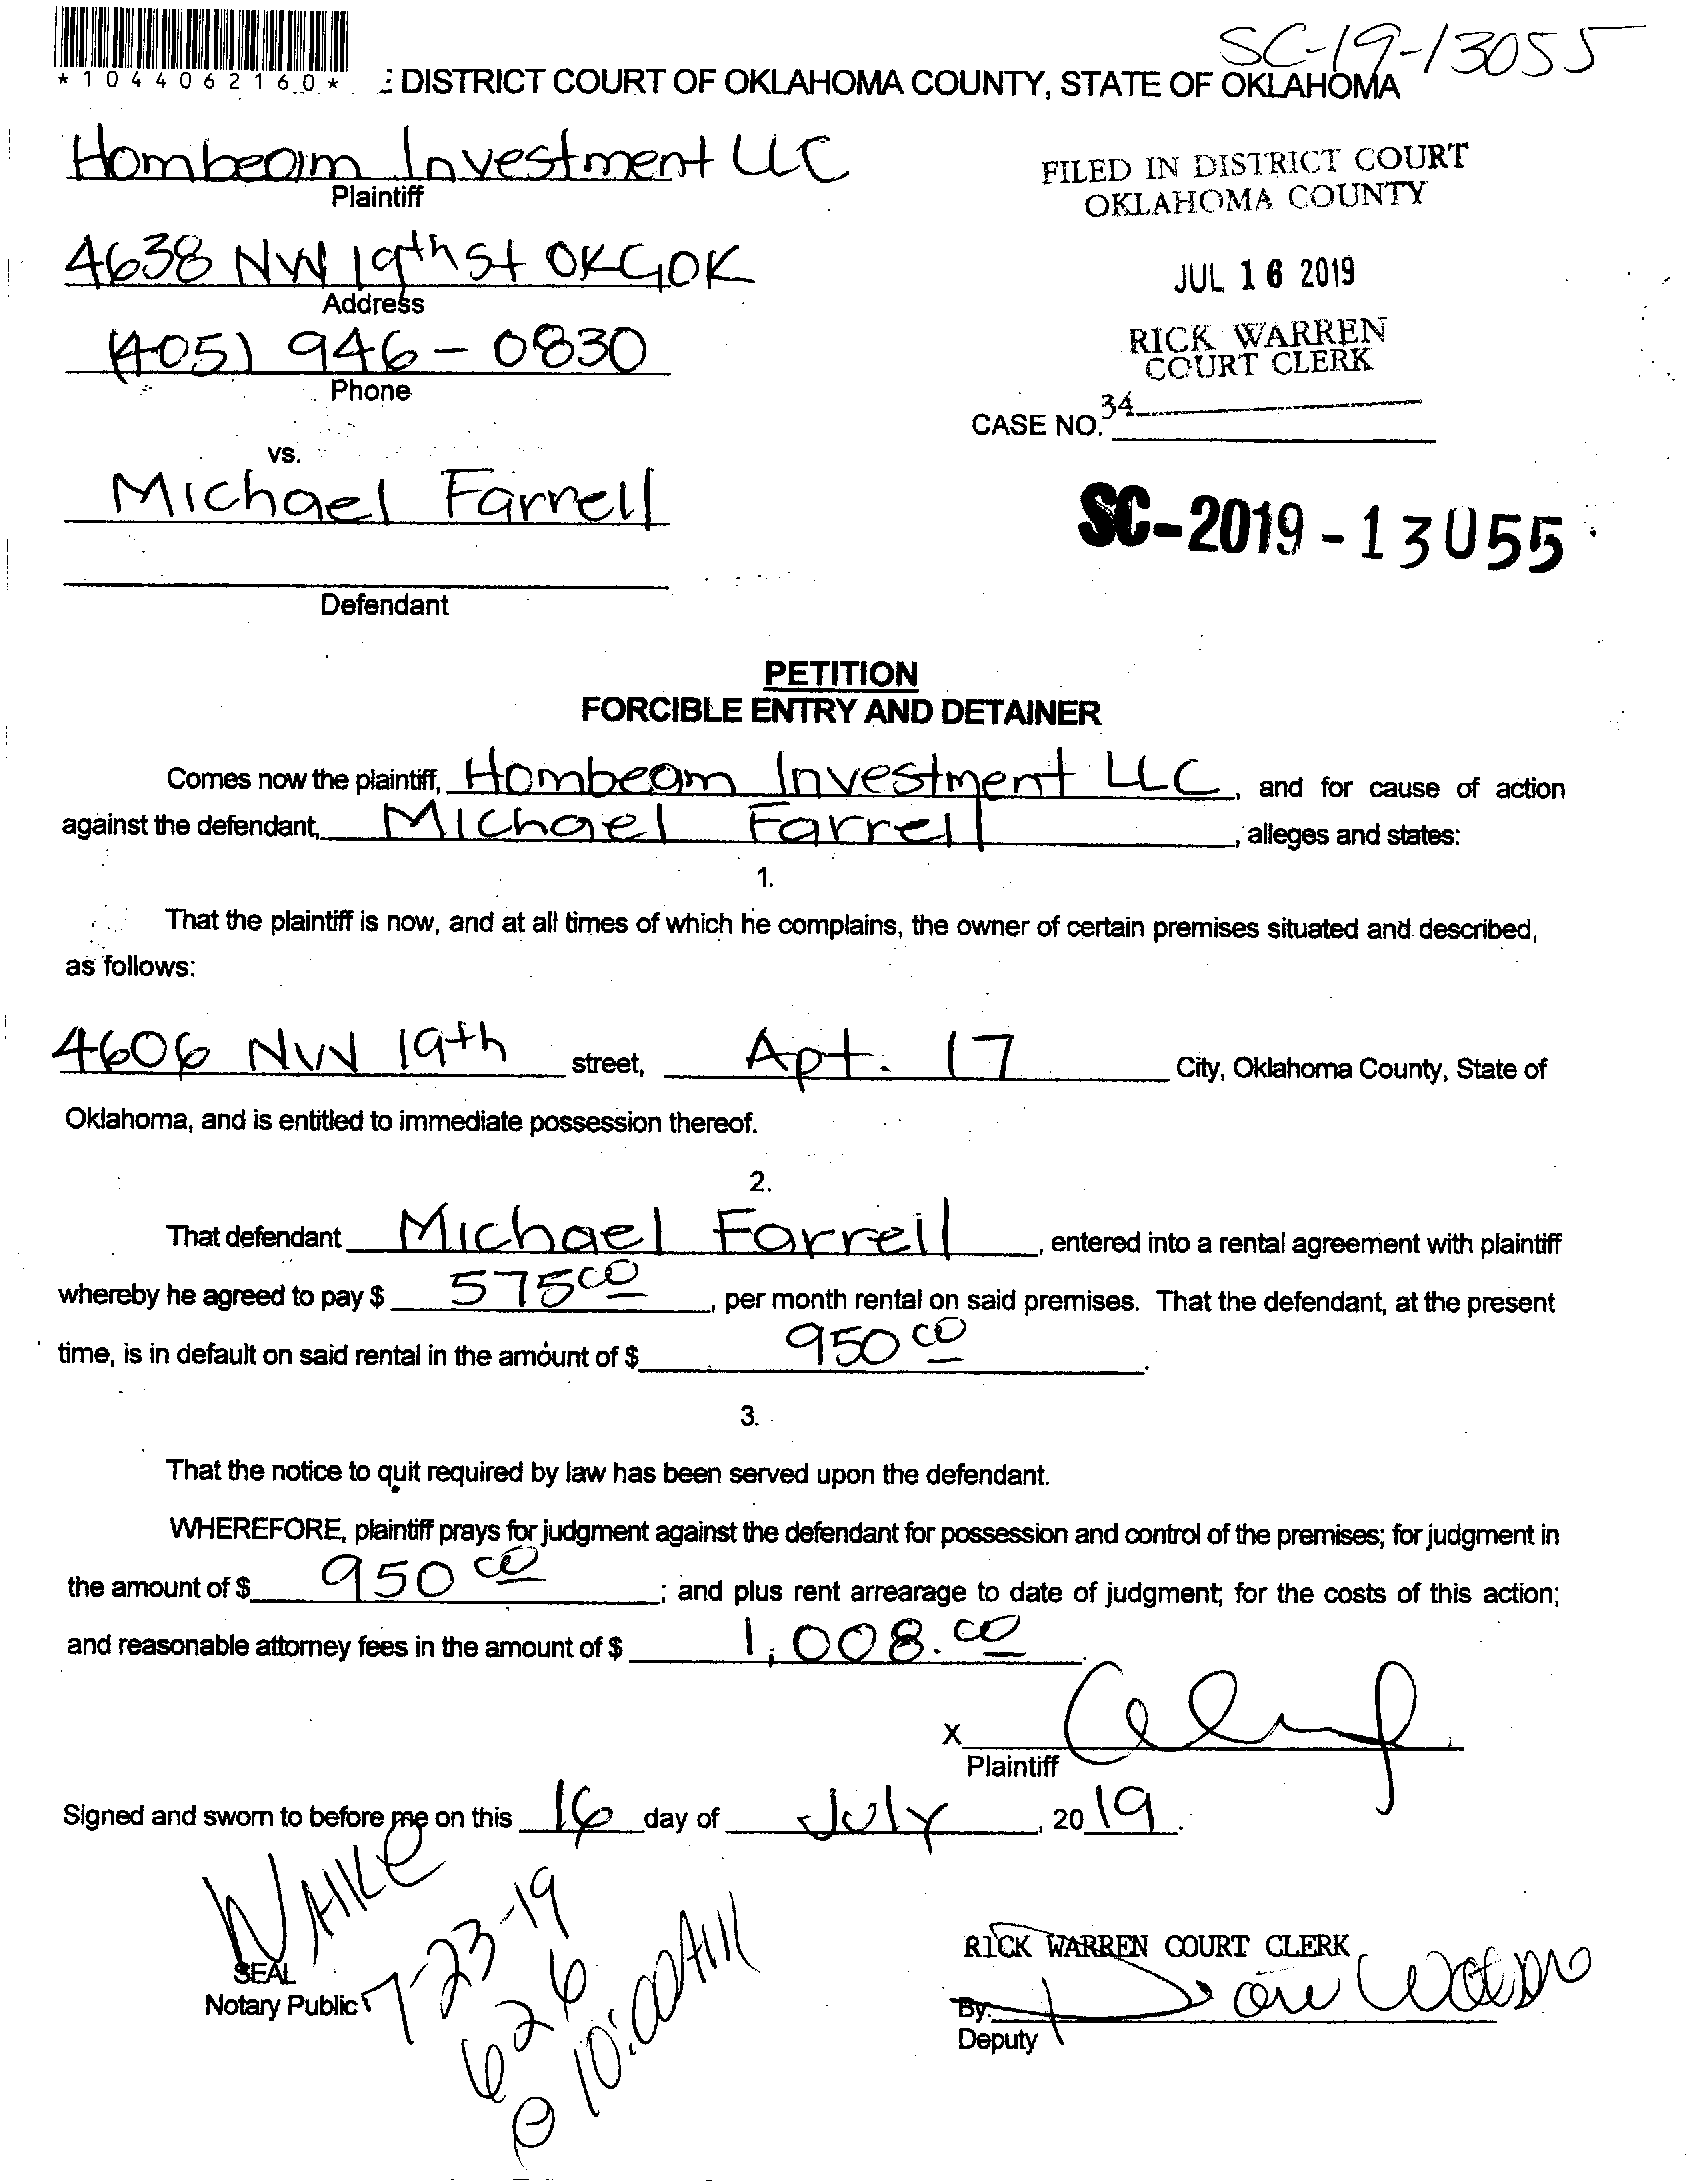 SC-19-13055
*1044062160*
E DISTRICT COURT OF OKLAHOMA COUNTY, STATE OF OKLAHOMA
Hombeam Investment LLC
Plaintiff
FILED IN DISTRICT COURT
OKLAHOMA COUNTY
4638 NW 19th St OKC OK
Address
JUL 16 2019
(405) 946-0830
Phone
RICK WARREN
COURT CLERK
34
CASE NO.
vs.
Michael Farrell
SC-2019-13055
Defendant
PETITION
FORCIBLE ENTRY AND DETAINER
Comes now the plaintiff, Hombeam Investment LLC, and for cause of action
against the defendant, Michael Farrell, alleges and states:
1.
That the plaintiff is now, and at all times of which he complains, the owner of certain premises situated and described,
as follows:
4606 NW 19th street, Apt. 17 City, Oklahoma County, State of
Oklahoma, and is entitled to immediate possession thereof.
2.
That defendant Michael Farrell, entered into a rental agreement with plaintiff
whereby he agreed to pay $ 575 00, per month rental on said premises. That the defendant, at the present
time, is in default on said rental in the amount of $ 950 00.
3.
That the notice to quit required by law has been served upon the defendant.
WHEREFORE, plaintiff prays for judgment against the defendant for possession and control of the premises; for judgment in
the amount of $ 950 00; and plus rent arrearage to date of judgment; for the costs of this action;
and reasonable attorney fees in the amount of $ 1,008.00.
X
Plaintiff
Signed and sworn to before me on this 16 day of July, 2019.
SEAL
Notary Public
7-23-19
626
@ 10:00AM
RICK WARREN COURT CLERK
By:
Deputy